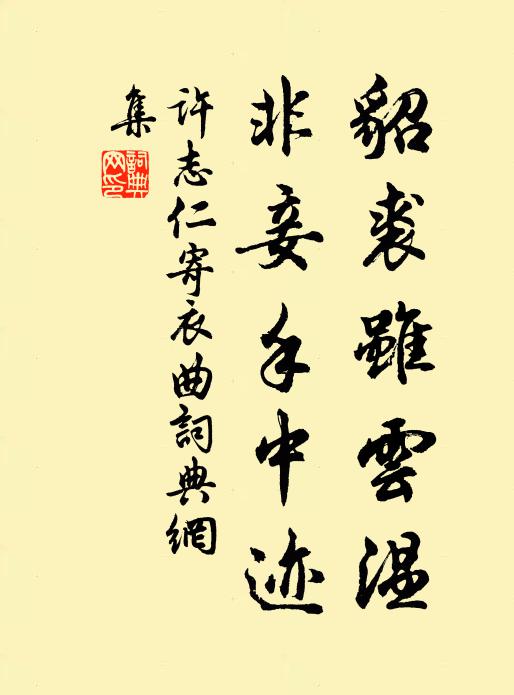 貂裘雖雲温
非妾手中迹
許志仁寄衣曲詞典網
集
詞典網印